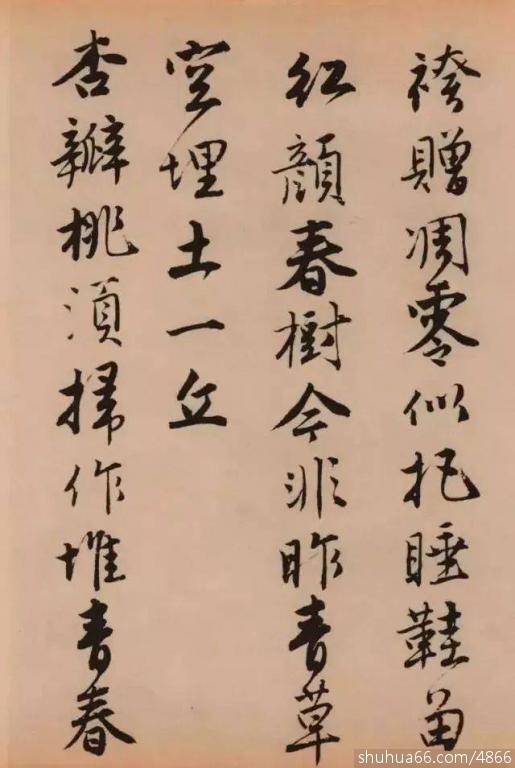 袴贈凋零似把睡鞋留
紅顏春樹今非昨青草
空埋土一丘
杏瓣桃須掃作堆青春
shuhua66.com/4866